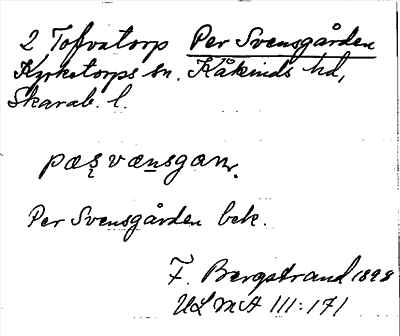 2 Tofvatorp Per Svensgården
Kyrketorps sn. Kåkinds hd,
Skarab. l.
pæş væn̲sgaɳ.
Per Svensgården bek.
F. Bergstrand 1898
ULMA 111:171